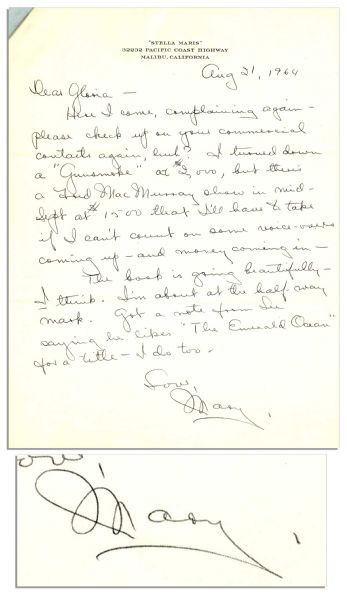 "STELLA MARIS"
32232 PACIFIC COAST HIGHWAY
MALIBU, CALIFORNIA
Aug 21, 1964
Dear Gloria —
Here I come, complaining again —
please check up on your commercial
contacts again, huh? I turned down
a "Gunsmoke" at $2,000, but there's
a Fred MacMurray show in mid-
Sept at $1500 that I'll have to take
if I can't count on some voice-overs
coming up — and money coming in —
The book is going beautifully —
I think. I'm about at the half way
mark. Got a note from
saying he likes "The Emerald Ocean"
for a title — I do too.
Love,
Mary
Love,
Mary